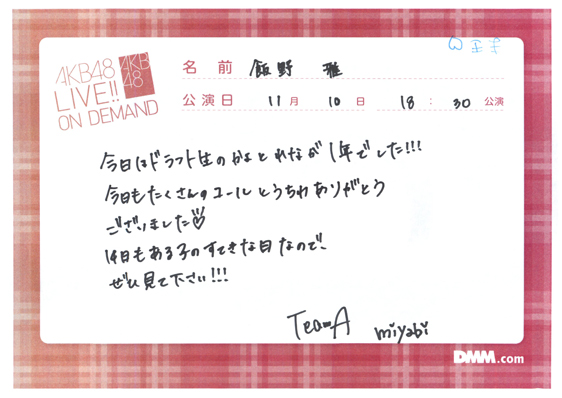 AKB48
LIVE!!
ON DEMAND
AKB
48
名 前 飯野 雅
公演日 11月 10日 18:30 公演
今日はドラフト生のかよとれなが1年でした!!!
今日もたくさんのコールとうちわありがとう
ございました♡
14日もある子のすてきな日なので、
ぜひ見て下さい!!!
TeamA miyabi
DMM.com